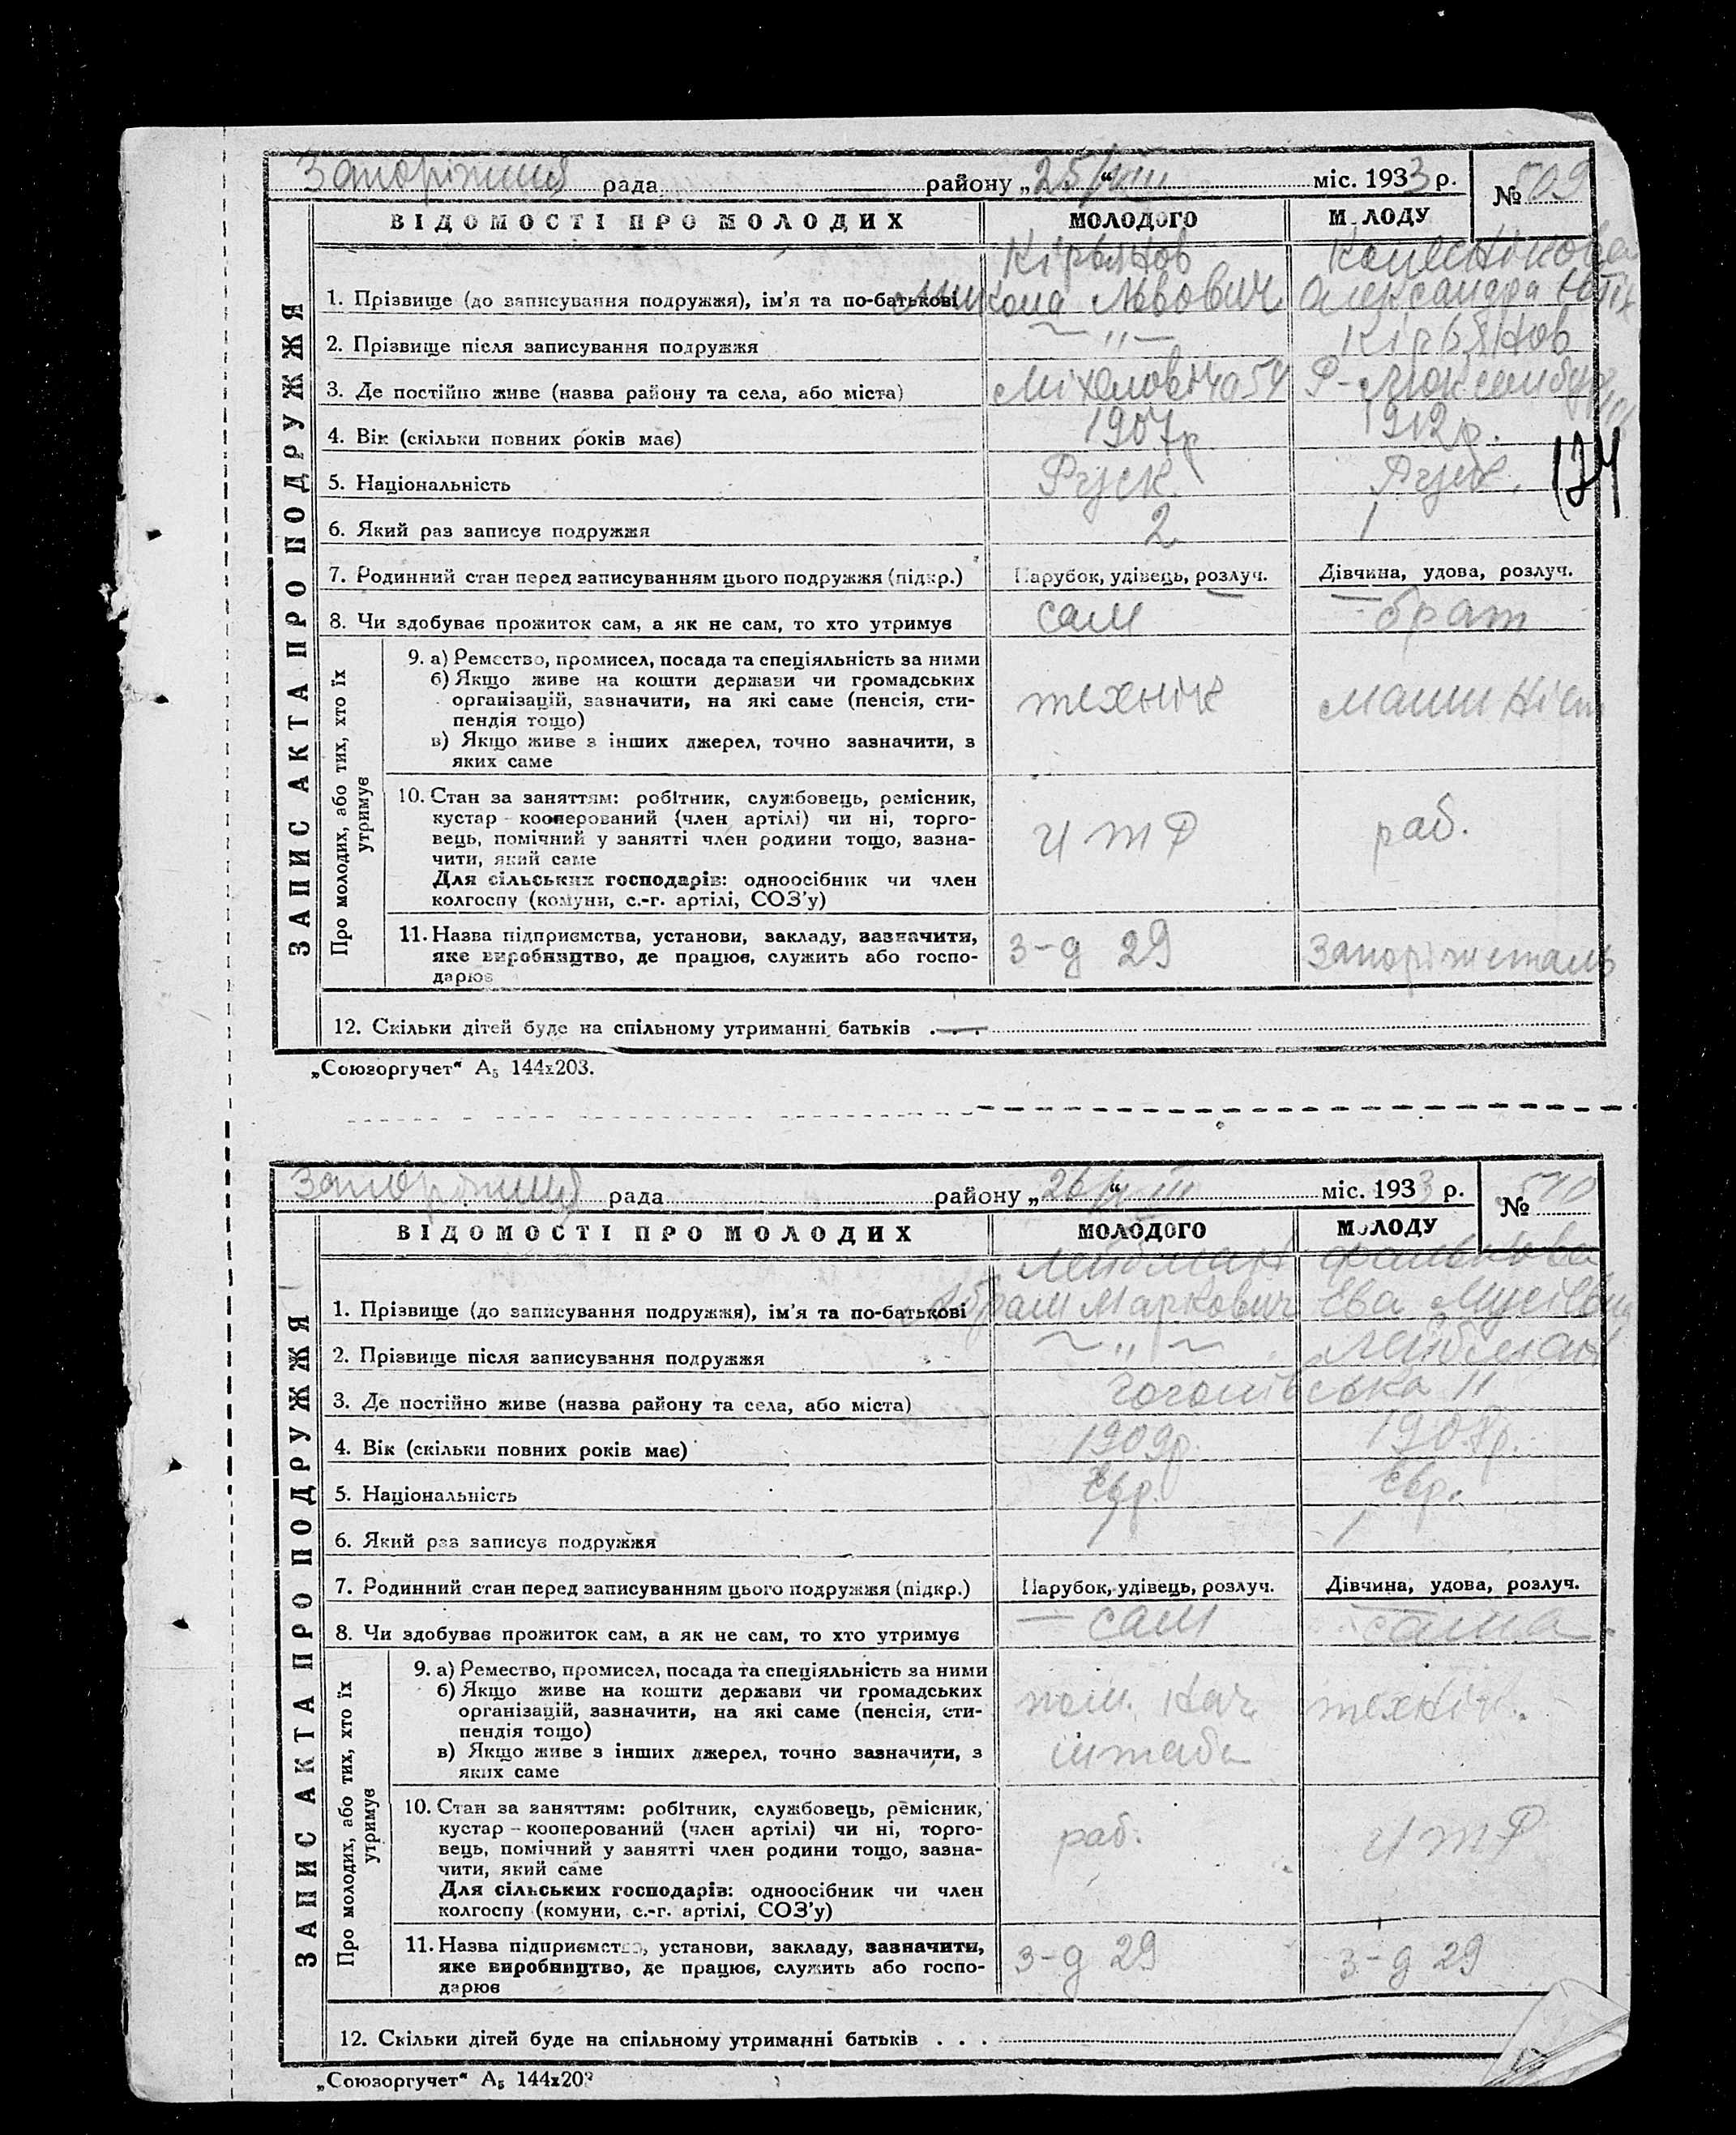 Запоріжська рада району „25/VIII“ міс. 1933 р. № 509
ВІДОМОСТІ ПРО МОЛОДИХ МОЛОДОГО М ЛОДУ
Кірьянов Колеснікова
1. Прізвище (до записування подружжя), ім'я та по-батькові Микола Львович Олександра
2. Прізвище після записування подружжя — „ — Кірьянов
3. Де постійно живе (назва району та села, або міста) 54 Р-Люксембург
4. Вік (скільки повних років має) 1907р 1912р.
5. Національність Руск. Руск.
6. Який раз записує подружжя 2 1
7. Родинний стан перед записуванням цього подружжя (підкр.) Парубок, удівець, розлуч. Дівчина, удова, розлуч.
8. Чи здобуває прожиток сам, а як не сам, то хто утримує сам брат
ЗАПИС АКТА ПРО ПОДРУЖЖЯ
Про молодих, або тих, хто їх
утримує
9. а) Ремество, промисел, посада та спеціяльність за ними
б) Якщо живе на кошти держави чи громадських
організацій, зазначити, на які саме (пенсія, сти-
пендія тощо)
в) Якщо живе з інших джерел, точно зазначити, з
яких саме
технік машиніст
10. Стан за заняттям: робітник, службовець, ремісник,
кустар - кооперований (член артілі) чи ні, торго-
вець, помічний у занятті член родини тощо, зазна-
чити, який саме
Для сільських господарів: одноосібник чи член
колгоспу (комуни, с.-г. артілі, СОЗ'у)
ИТР раб.
11. Назва підприємства, установи, закладу, зазначити,
яке виробництво, де працює, служить або госпо-
дарює
з-д 29 Запоріжсталь
12. Скільки дітей буде на спільному утриманні батьків . — .
„Союзоргучет“ А₅ 144х203.
Запоріжська рада району „26/VIII“ міс. 1933 р. № 510
ВІДОМОСТІ ПРО МОЛОДИХ МОЛОДОГО МОЛОДУ
Лейбман
1. Прізвище (до записування подружжя), ім'я та по-батькові Абрам Маркович Ева Мусіївна
2. Прізвище після записування подружжя ~ „ ~ Лейбман
3. Де постійно живе (назва району та села, або міста) Гоголівська 11
4. Вік (скільки повних років має) 1909р. 1907р.
5. Національність Евр. Евр.
6. Який раз записує подружжя 1 1
7. Родинний стан перед записуванням цього подружжя (підкр.) Парубок, удівець, розлуч. Дівчина, удова, розлуч.
8. Чи здобуває прожиток сам, а як не сам, то хто утримує сам сама
ЗАПИС АКТА ПРО ПОДРУЖЖЯ
Про молодих, або тих, хто їх
утримує
9. а) Ремество, промисел, посада та спеціяльність за ними
б) Якщо живе на кошти держави чи громадських
організацій, зазначити, на які саме (пенсія, сти-
пендія тощо)
в) Якщо живе з інших джерел, точно зазначити, з
яких саме
пом. нач. технік.
штаба
10. Стан за заняттям: робітник, службовець, ремісник,
кустар - кооперований (член артілі) чи ні, торго-
вець, помічний у занятті член родини тощо, зазна-
чити, який саме
Для сільських господарів: одноосібник чи член
колгоспу (комуни, с.-г. артілі, СОЗ'у)
раб. ИТР
11. Назва підприємства, установи, закладу, зазначити,
яке виробництво, де працює, служить або госпо-
дарює
з-д 29 з-д 29
12. Скільки дітей буде на спільному утриманні батьків . . .
„Союзоргучет“ А₅ 144х203